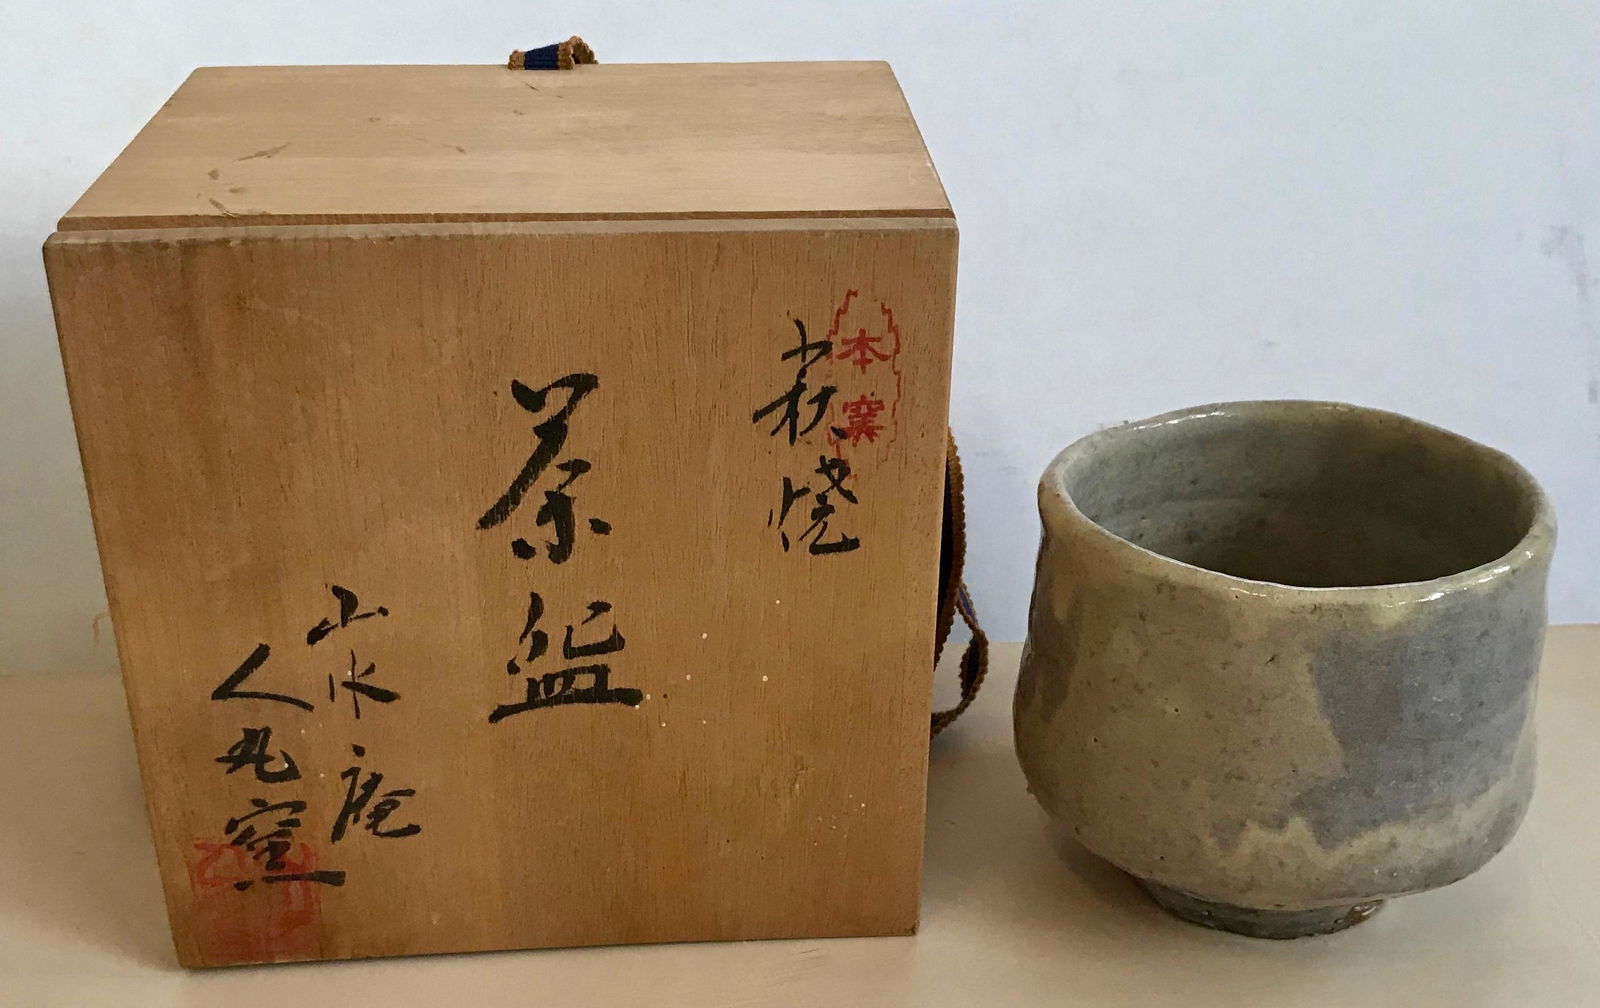 本窯
萩焼
茶盌
山水庵
人丸窯